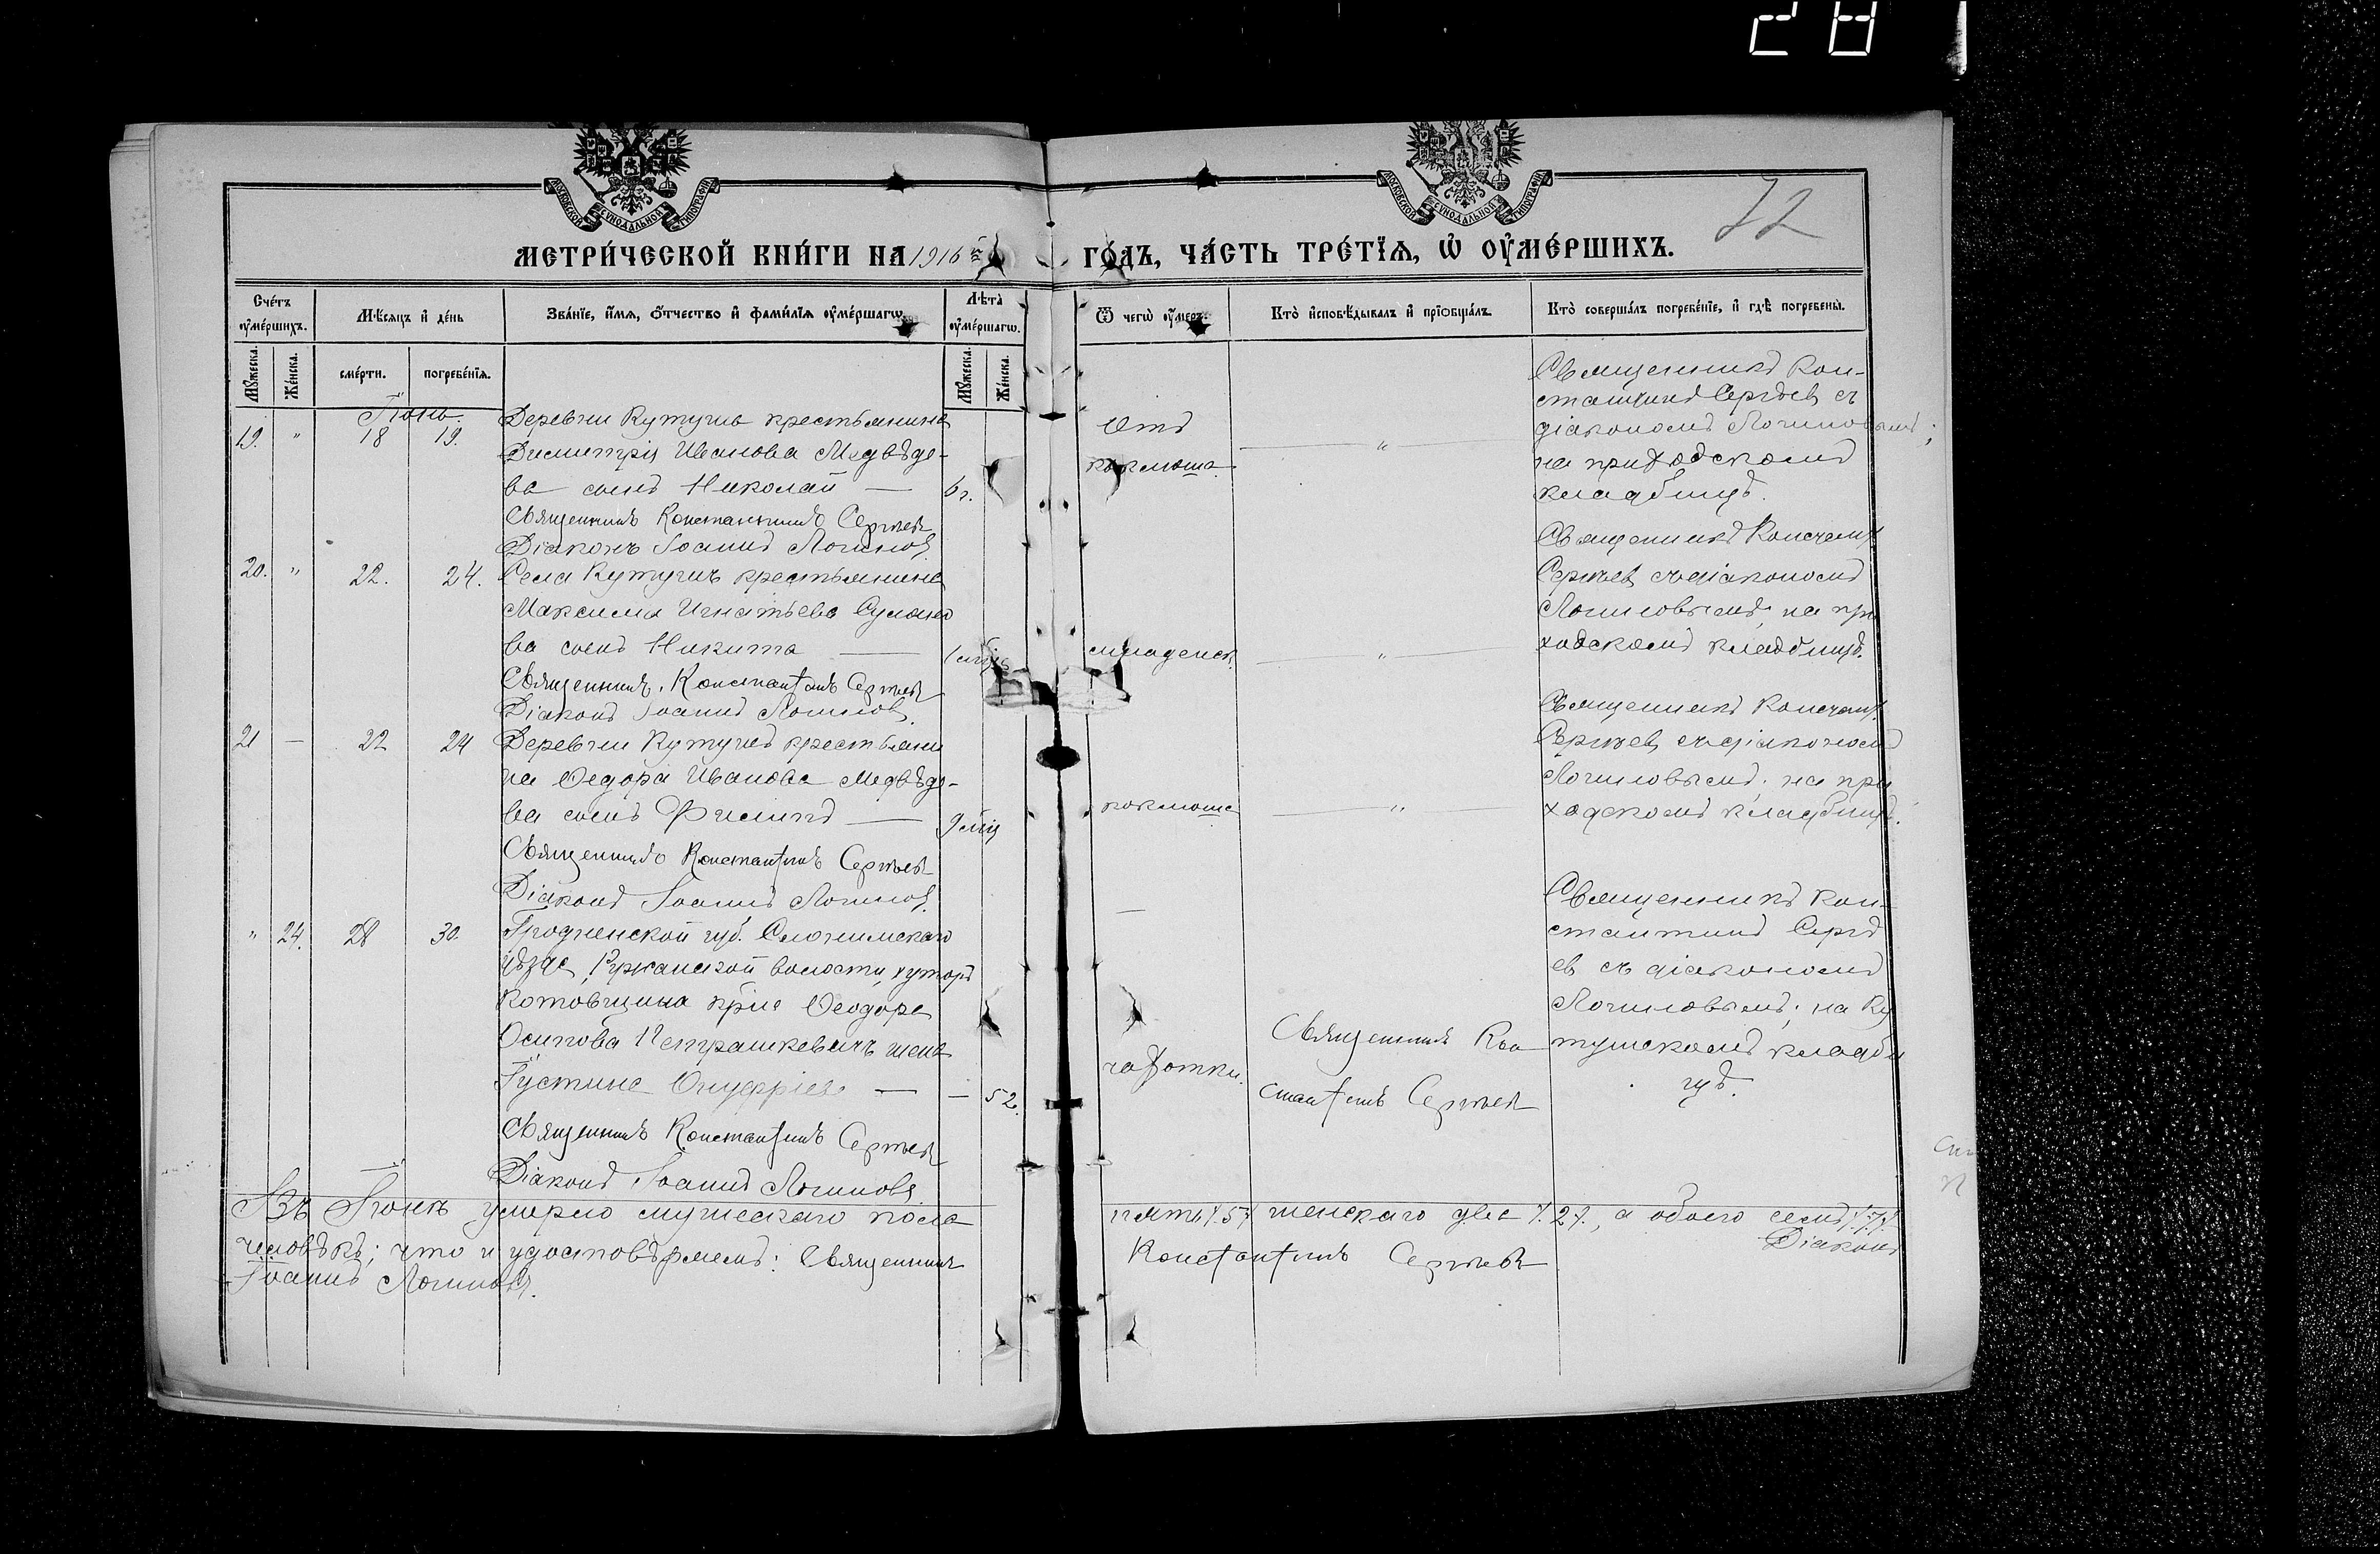 281
МОСКОВСКОЙ СѴНОДАЛЬНОЙ ТИПОГРАФІИ
МОСКОВСКОЙ СѴНОДАЛЬНОЙ ТИПОГРАФІИ
72
МЕТРИ́ЧЕСКОЙ КНИ́ГИ НА 1916й ГО́ДЪ, ЧА́СТЬ ТРЕ́ТЇѦ, Ѡ҆ ОУ҆МЕ́РШИХЪ.
Сче́тъ оу҆ме́ршихъ.
Мѣ́сяцъ и҆ де́нь
Зва́нїе, и҆́мѧ, ѻ҆́тчество и҆ фами́лїѧ оу҆ме́ршагѡ.
Лѣта̀ оу҆ме́ршагѡ.
Ѿ чегѡ̀ оу҆́меръ.
Кто̀ и҆сповѣ́дывалъ и҆ прїѻбща́лъ.
Кто̀ соверша́лъ погребе́нїе, и҆ гдѣ̀ погребены̀.
Мꙋ́жеска.
Же́нска.
сме́рти.
погребе́нїѧ.
Мꙋ́жеска.
Же́нска.
Іюнь.
19. " 18 19.
Деревни Кутушъ крестьянина
Димитрія Иванова Медвѣде-
ва сынъ Николай — 6 г.
Священникъ Константинъ Сергѣев
Діаконъ Іоаннъ Логинов
Отъ
коклюша
"
Священникъ Кон-
стантинъ Сергѣев съ
діакономъ Логиновымъ;
на приходскомъ
кладбищѣ.
20. " 22. 24.
Села Кутушъ крестьянина
Максима Игнатьева
ва сынъ Никита —
Священникъ Константинъ Сергѣев
Діаконъ Іоаннъ Логинов.
младенч.
"
Священникъ Констант
Сергѣев съ діакономъ
Логиновымъ; на при
ходскомъ кладбищѣ.
21 — 22 24
Деревни Кутушъ крестьяни
на Ѳедора Иванова Медвѣде-
ва сынъ Филипъ — 9 мѣц
Священникъ Константинъ Сергѣев
Діаконъ Іоаннъ Логинов.
коклюша
"
Священникъ Констант.
Сергѣев съ діакономъ
Логиновымъ; на при
ходскомъ кладбищѣ.
" 24. 28 30.
Гродненской губ. Слонимскаго
уѣзда, волости, хуторъ
Котовщина кр҃на Ѳеодора
Осипова Петрашкевичъ жена
Іустина Онуфріева — — 52.
Священникъ Константинъ Сергѣев
Діаконъ Іоаннъ Логиновъ.
чахотки.
Священникъ Кон
стантинъ Сергѣев
Священникъ Кон-
стантинъ Сергѣ
ев съ діакономъ
Логиновымъ; на Ку
тушскомъ кладби
щѣ.
Въ Іюнѣ умерло мужескаго пола пять /.5./ женскаго два /.2./, а обоего семь /.7./
человѣкъ; что и удостовѣряемъ: Священникъ Константинъ Сергѣев Діаконъ
Іоаннъ Логиновъ.